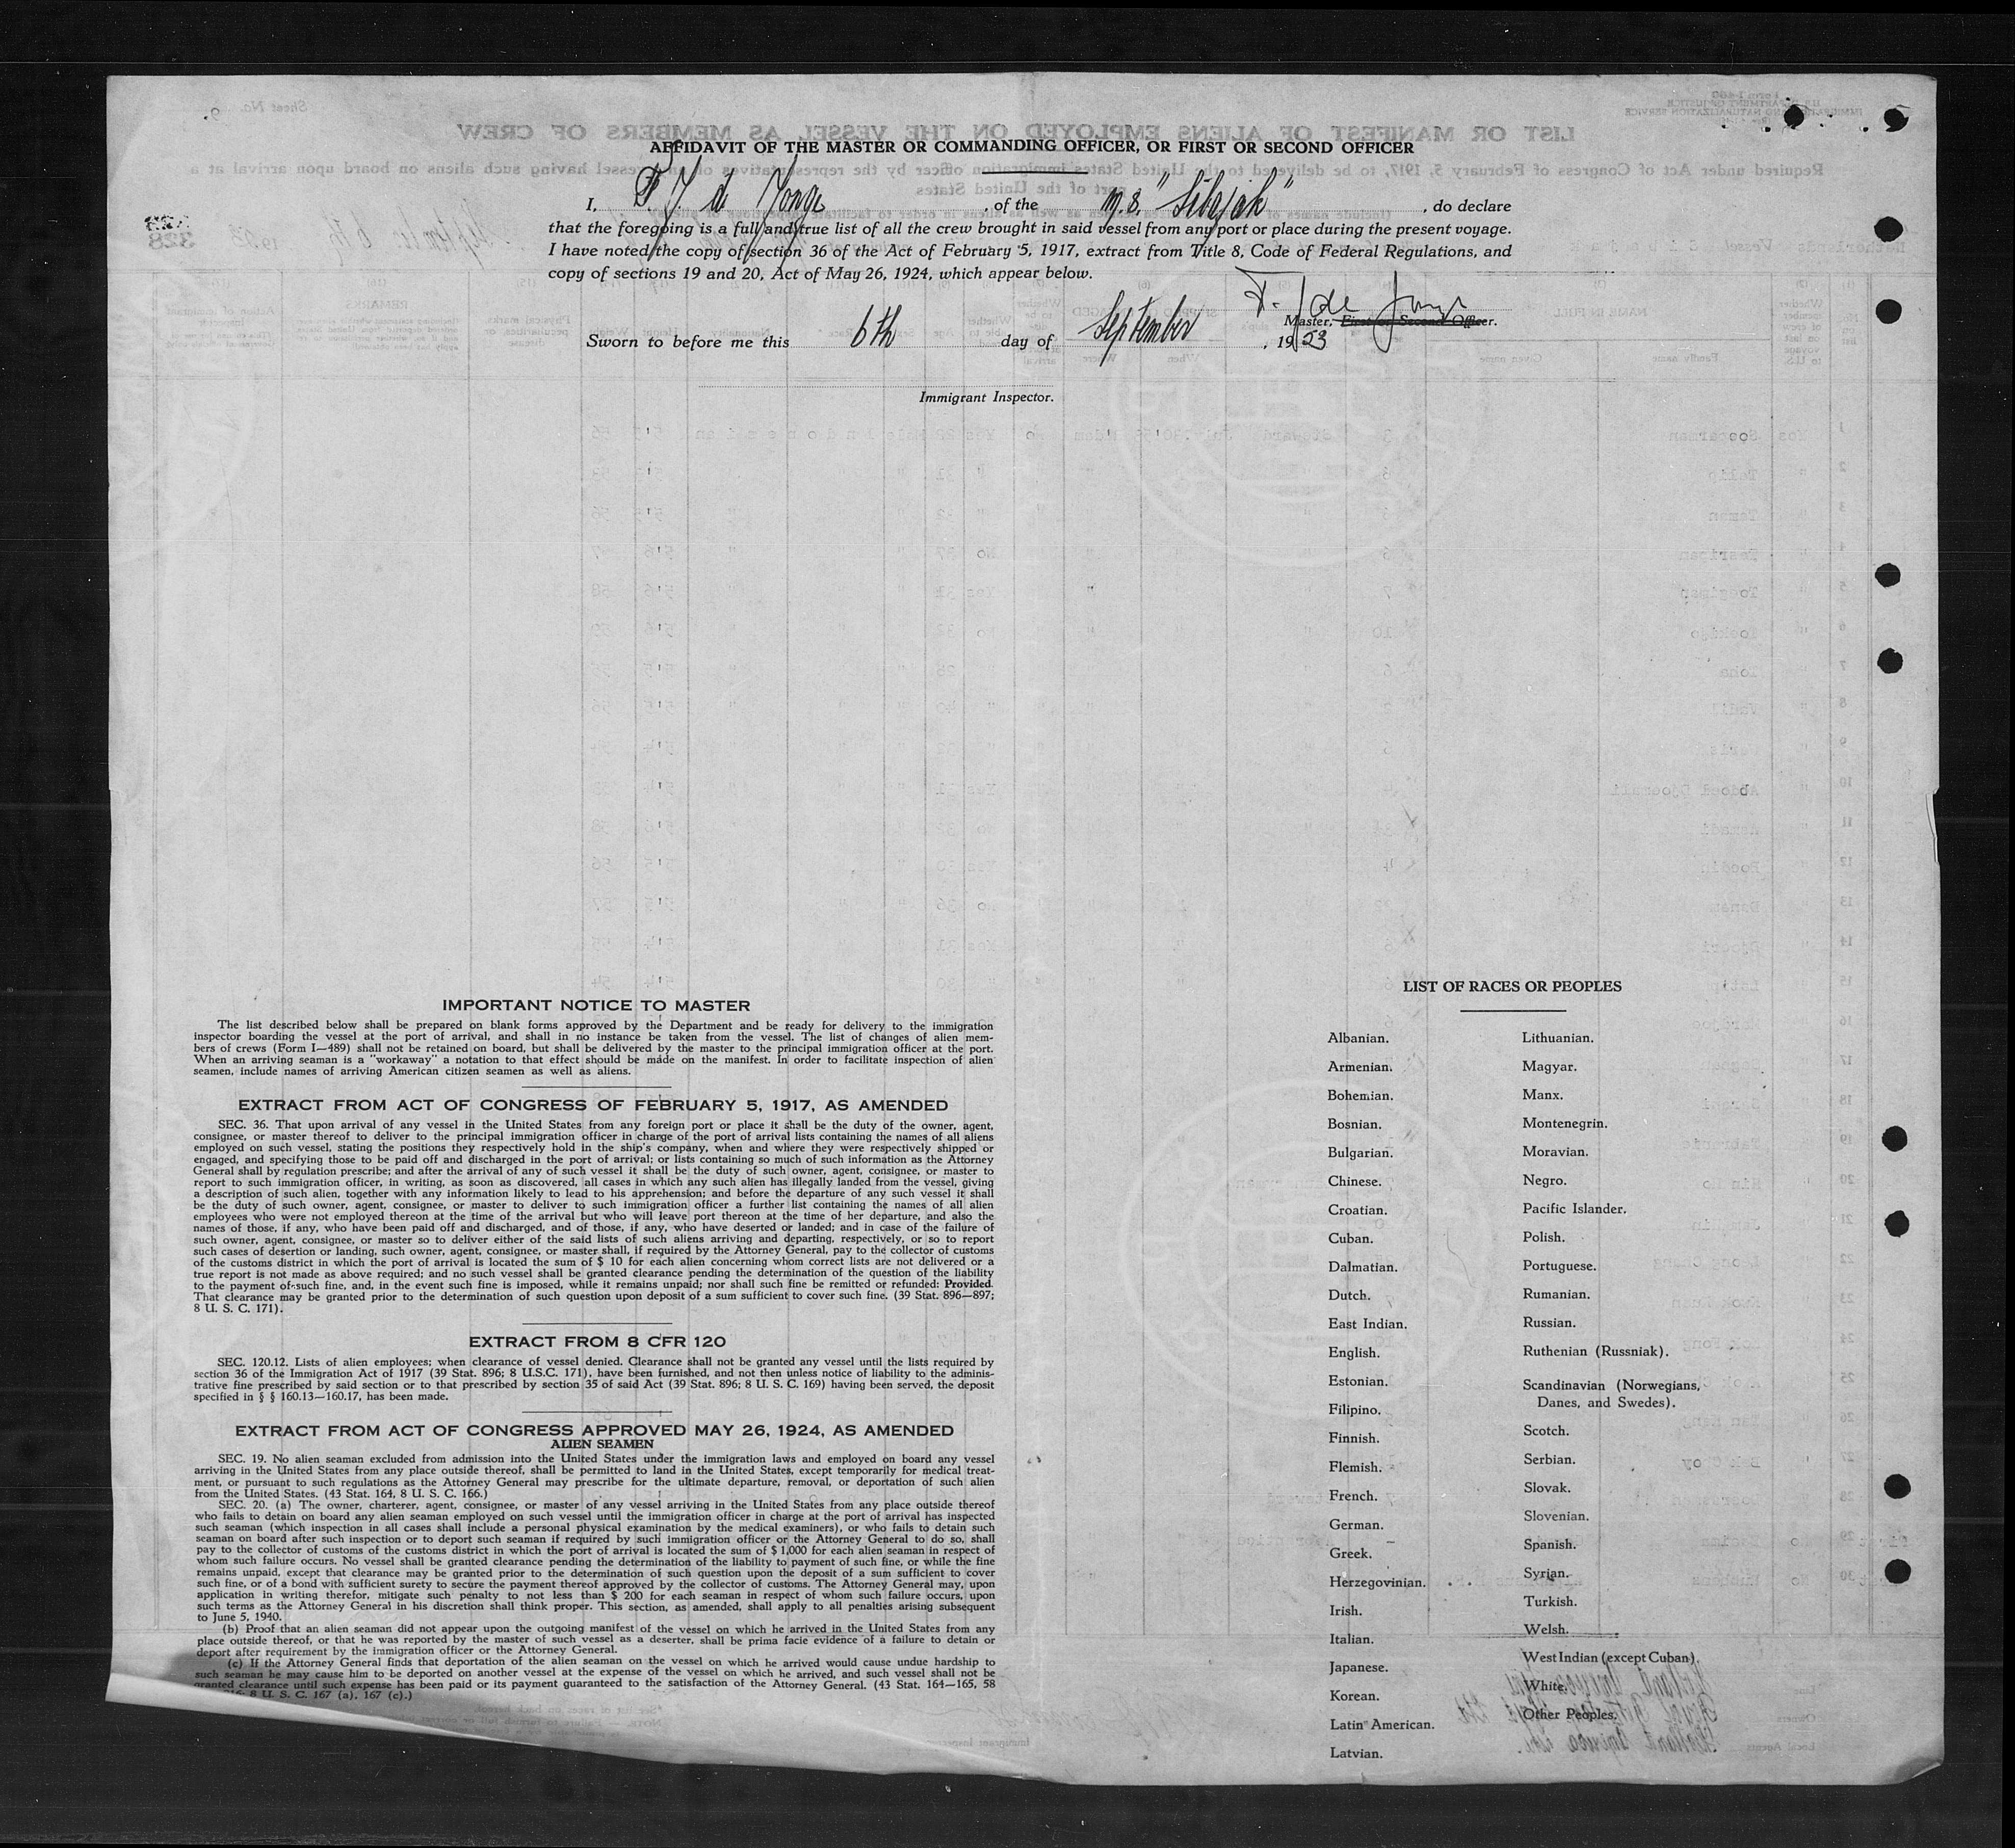 AFFIDAVIT OF THE MASTER OR COMMANDING OFFICER, OR FIRST OR SECOND OFFICER
I, F. J. de Jonge, of the m.s. "Sibajak", do declare
that the foregoing is a full and true list of all the crew brought in said vessel from any port or place during the present voyage.
I have noted the copy of section 36 of the Act of February 5, 1917, extract from Title 8, Code of Federal Regulations, and
copy of sections 19 and 20, Act of May 26, 1924, which appear below.
F. J de Jonge
Master, First or Second Officer.
Sworn to before me this 6th day of September, 1953
Immigrant Inspector.
IMPORTANT NOTICE TO MASTER
The list described below shall be prepared on blank forms approved by the Department and be ready for delivery to the immigration
inspector boarding the vessel at the port of arrival, and shall in no instance be taken from the vessel. The list of changes of alien mem-
bers of crews (Form I—489) shall not be retained on board, but shall be delivered by the master to the principal immigration officer at the port.
When an arriving seaman is a "workaway" a notation to that effect should be made on the manifest. In order to facilitate inspection of alien
seamen, include names of arriving American citizen seamen as well as aliens.
EXTRACT FROM ACT OF CONGRESS OF FEBRUARY 5, 1917, AS AMENDED
SEC. 36. That upon arrival of any vessel in the United States from any foreign port or place it shall be the duty of the owner, agent,
consignee, or master thereof to deliver to the principal immigration officer in charge of the port of arrival lists containing the names of all aliens
employed on such vessel, stating the positions they respectively hold in the ship's company, when and where they were respectively shipped or
engaged, and specifying those to be paid off and discharged in the port of arrival; or lists containing so much of such information as the Attorney
General shall by regulation prescribe; and after the arrival of any of such vessel it shall be the duty of such owner, agent, consignee, or master to
report to such immigration officer, in writing, as soon as discovered, all cases in which any such alien has illegally landed from the vessel, giving
a description of such alien, together with any information likely to lead to his apprehension; and before the departure of any such vessel it shall
be the duty of such owner, agent, consignee, or master to deliver to such immigration officer a further list containing the names of all alien
employees who were not employed thereon at the time of the arrival but who will leave port thereon at the time of her departure, and also the
names of those, if any, who have been paid off and discharged, and of those, if any, who have deserted or landed; and in case of the failure of
such owner, agent, consignee, or master so to deliver either of the said lists of such aliens arriving and departing, respectively, or so to report
such cases of desertion or landing, such owner, agent, consignee, or master shall, if required by the Attorney General, pay to the collector of customs
of the customs district in which the port of arrival is located the sum of $ 10 for each alien concerning whom correct lists are not delivered or a
true report is not made as above required; and no such vessel shall be granted clearance pending the determination of the question of the liability
to the payment of such fine, and, in the event such fine is imposed, while it remains unpaid; nor shall such fine be remitted or refunded: Provided.
That clearance may be granted prior to the determination of such question upon deposit of a sum sufficient to cover such fine. (39 Stat. 896—897;
8 U. S. C. 171).
EXTRACT FROM 8 CFR 120
SEC. 120.12. Lists of alien employees; when clearance of vessel denied. Clearance shall not be granted any vessel until the lists required by
section 36 of the Immigration Act of 1917 (39 Stat. 896; 8 U.S.C. 171), have been furnished, and not then unless notice of liability to the adminis-
trative fine prescribed by said section or to that prescribed by section 35 of said Act (39 Stat. 896; 8 U. S. C. 169) having been served, the deposit
specified in § § 160.13—160.17, has been made.
EXTRACT FROM ACT OF CONGRESS APPROVED MAY 26, 1924, AS AMENDED
ALIEN SEAMEN
SEC. 19. No alien seaman excluded from admission into the United States under the immigration laws and employed on board any vessel
arriving in the United States from any place outside thereof, shall be permitted to land in the United States, except temporarily for medical treat-
ment, or pursuant to such regulations as the Attorney General may prescribe for the ultimate departure, removal, or deportation of such alien
from the United States. (43 Stat. 164, 8 U. S. C. 166.)
SEC. 20. (a) The owner, charterer, agent, consignee, or master of any vessel arriving in the United States from any place outside thereof
who fails to detain on board any alien seaman employed on such vessel until the immigration officer in charge at the port of arrival has inspected
such seaman (which inspection in all cases shall include a personal physical examination by the medical examiners), or who fails to detain such
seaman on board after such inspection or to deport such seaman if required by such immigration officer or the Attorney General to do so, shall
pay to the collector of customs of the customs district in which the port of arrival is located the sum of $ 1,000 for each alien seaman in respect of
whom such failure occurs. No vessel shall be granted clearance pending the determination of the liability to payment of such fine, or while the fine
remains unpaid, except that clearance may be granted prior to the determination of such question upon the deposit of a sum sufficient to cover
such fine, or of a bond with sufficient surety to secure the payment thereof approved by the collector of customs. The Attorney General may, upon
application in writing therefor, mitigate such penalty to not less than $ 200 for each seaman in respect of whom such failure occurs, upon
such terms as the Attorney General in his discretion shall think proper. This section, as amended, shall apply to all penalties arising subsequent
to June 5, 1940.
(b) Proof that an alien seaman did not appear upon the outgoing manifest of the vessel on which he arrived in the United States from any
place outside thereof, or that he was reported by the master of such vessel as a deserter, shall be prima facie evidence of a failure to detain or
deport after requirement by the immigration officer or the Attorney General.
(c) If the Attorney General finds that deportation of the alien seaman on the vessel on which he arrived would cause undue hardship to
such seaman he may cause him to be deported on another vessel at the expense of the vessel on which he arrived, and such vessel shall not be
granted clearance until such expense has been paid or its payment guaranteed to the satisfaction of the Attorney General. (43 Stat. 164—165, 58
8 U. S. C. 167 (a), 167 (c).)
LIST OF RACES OR PEOPLES
Albanian.
Armenian.
Bohemian.
Bosnian.
Bulgarian.
Chinese.
Croatian.
Cuban.
Dalmatian.
Dutch.
East Indian.
English.
Estonian.
Filipino.
Finnish.
Flemish.
French.
German.
Greek.
Herzegovinian.
Irish.
Italian.
Japanese.
Korean.
Latin American.
Latvian.
Lithuanian.
Magyar.
Manx.
Montenegrin.
Moravian.
Negro.
Pacific Islander.
Polish.
Portuguese.
Rumanian.
Russian.
Ruthenian (Russniak).
Scandinavian (Norwegians,
Danes, and Swedes).
Scotch.
Serbian.
Slovak.
Slovenian.
Spanish.
Syrian.
Turkish.
Welsh.
West Indian (except Cuban).
White.
Other Peoples.